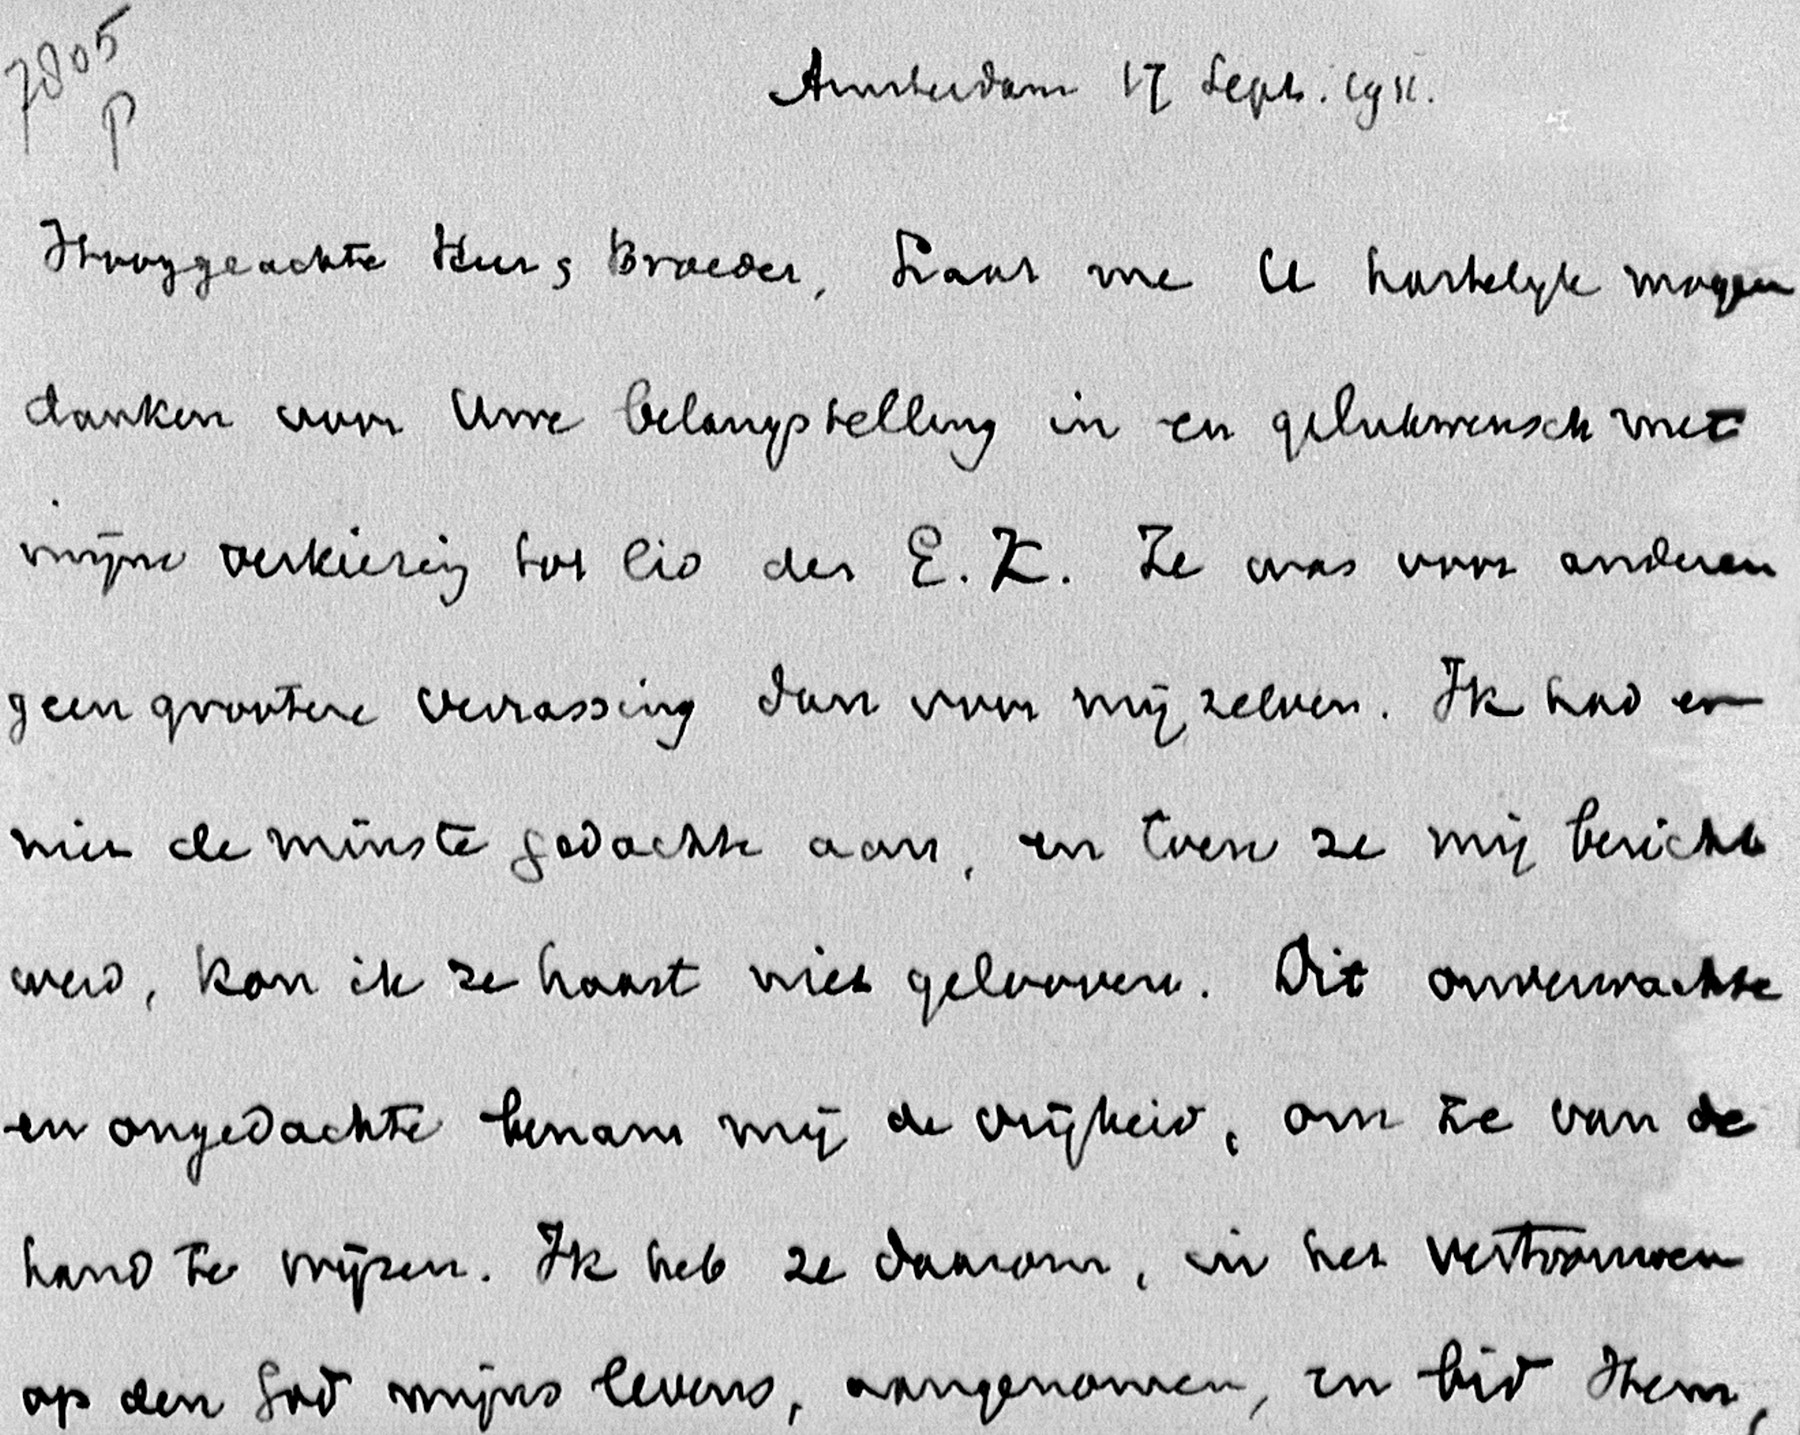 7805
P
Amsterdam 17 Sept. 1911.
Hooggeachte Heer & Broeder, Laat me U hartelijk mogen
danken voor Uwe belangstelling in en gelukwensch met
mijne verkiezing tot lid der E.K. Ze was voor anderen
geen grootere verrassing dan voor mij zelven. Ik had er
niet de minste gedachte aan, en toen ze mij bericht
werd, kon ik ze haast niet gelooven. Dit onverwachte
en ongedachte benam mij de vrijheid, om ze van de
hand te wijzen. Ik heb ze daarom, in het vertrouwen
op den God mijns levens, aangenomen, en bid Hem,